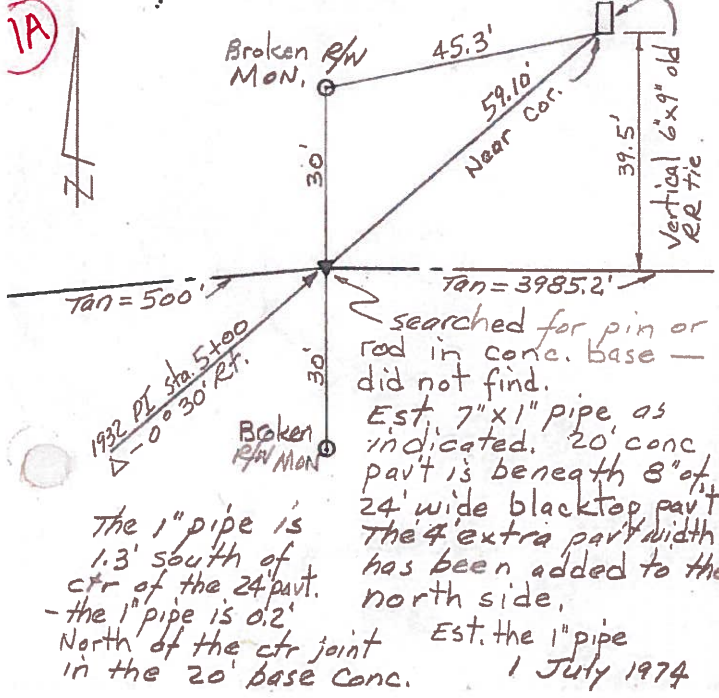 1A
N
Broken R/W
MON.
45.3'
59.10'
Near Cor.
39.5'
Vertical 6"x9" old
RR tie.
30'
Tan = 500'
Tan = 3985.2'
1932 PI sta. 5+00
△ - 0° 30' Rt.
30'
Broken
R/W MON
searched for pin or
rod in conc. base —
did not find.
Est. 7"x1" pipe as
indicated. 20' conc
pav't is beneath 8" of
24' wide blacktop pav't
The 4' extra pav't width
has been added to the
north side.
Est. the 1" pipe
1 July 1974
The 1" pipe is
1.3' south of
ctr of the 24' pavt.
- the 1" pipe is 0.2'
North of the ctr joint
in the 20' base conc.